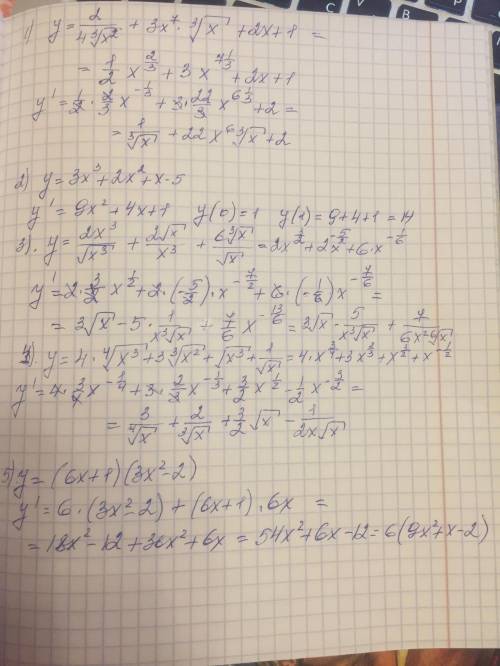 1) y = 2/(4∛x²) + 3x⁷ · ∛x + 2x + 1 =
= 1/2 x^(2/3) + 3x^(7 1/3) + 2x + 1
y' = 1/2 · 2/3 x^(-1/3) + 3 · 22/3 x^(6 1/3) + 2 =
= 1/∛x + 22x⁶ ∛x + 2
2) y = 3x³ + 2x² + x - 5
y' = 9x² + 4x + 1 y(0) = 1 y(1) = 9 + 4 + 1 = 14
3). y = 2x³/√x³ + 2√x/x³ + 6∛x/√x = 2x^(3/2) + 2x^(-5/2) + 6 · x^(-1/6)
y' = 2 · 3/2 x^(1/2) + 2 · (-5/2) · x^(-7/2) + 6 · (-1/6) x^(-7/6) =
= 3√x - 5 · 1/(x³√x) + 7/6 x^(-13/6) = 3√x - 5/(x³√x) + 7/(6x² ⁶√x)
4). y = 4 · ⁴√x³ + 3∛x² + √x³ + 1/√x = 4 · x^(3/4) + 3x^(2/3) + x^(1/2) + x^(-1/2)
y' = 4 · 3/4 x^(-1/4) + 3 · 2/3 x^(-1/3) + 3/2 x^(1/2) - 1/2 x^(-3/2) =
= 3/⁴√x + 2/∛x + 3/2 √x - 1/(2x√x)
5) y = (6x+1)(3x²-2)
y' = 6 · (3x²-2) + (6x+1) · 6x =
= 18x² - 12 + 36x² + 6x = 54x² + 6x - 12 = 6(9x² + x - 2)